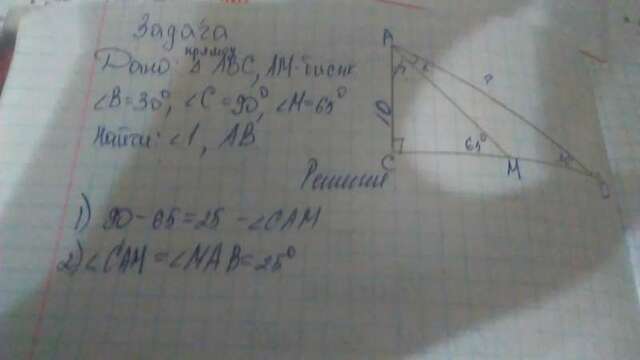 Задача
прямоу
Дано: Δ ABC, AM-бисек
∠B=30°, ∠C=90°, ∠M=65°
Найти: ∠1, AB
A
?
10
65°
C
M
Решение
1) 90-65=25 -∠CAM
2) ∠CAM=∠MAB=25°